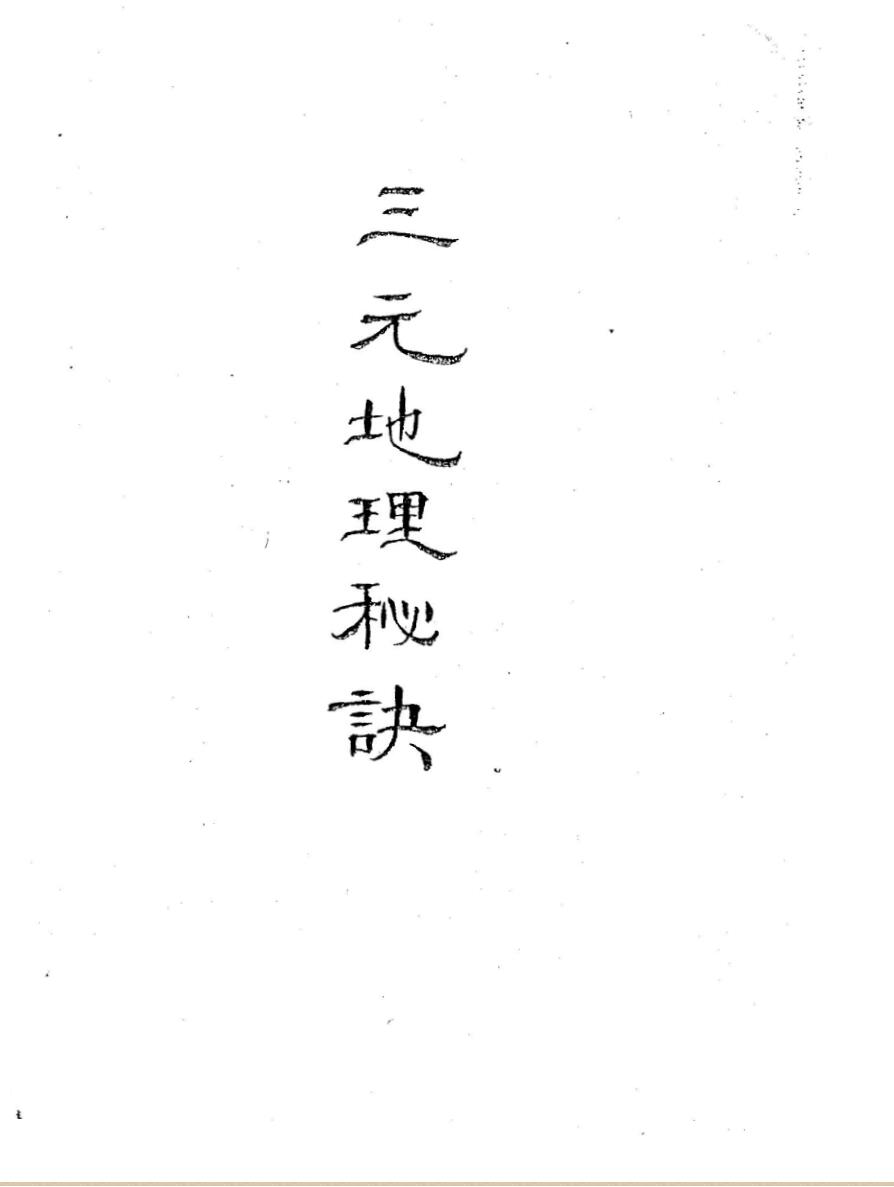 三元地理秘訣